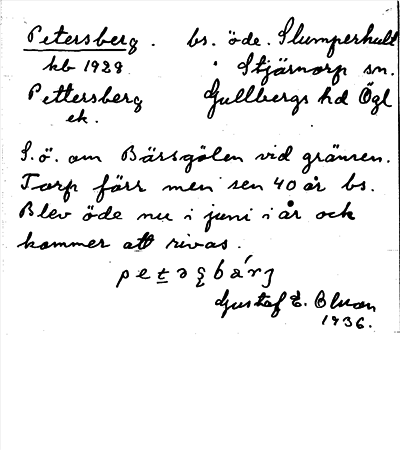 Petersberg. bs. öde. Slumperhult
kb 1928 Stjärnorp sn.
Pettersberg Gullbergs hd Ögl
ek.
S.ö. om Bärsgölen vid gränsen.
Torp förr men sen 40 år bs.
Blev öde nu i juni i år och
kommer att rivas.
Gustaf E. Olson
1936.